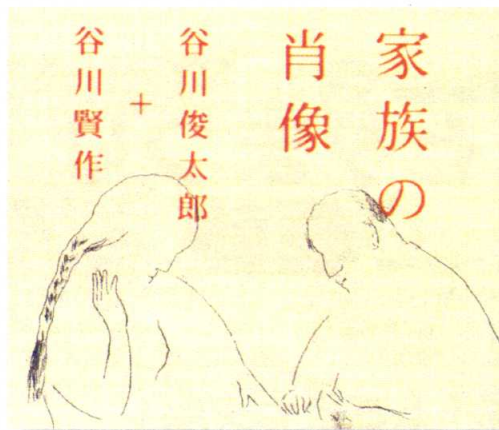 家族の
肖像
谷川俊太郎
+
谷川賢作